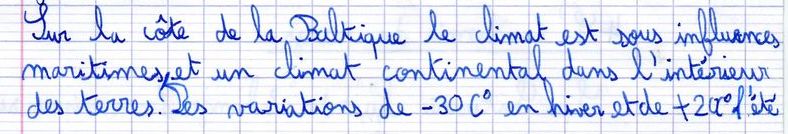 Sur la côte de la Baltique le climat est sous influences
maritimes, et un climat continental dans l'intérieur
des terres. Des variations de -30C° en hiver et de +20° l'été